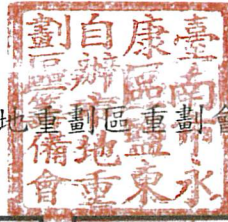 臺南市永
康區鹽東
自辦市地重
劃區籌備會
地重劃區重劃會